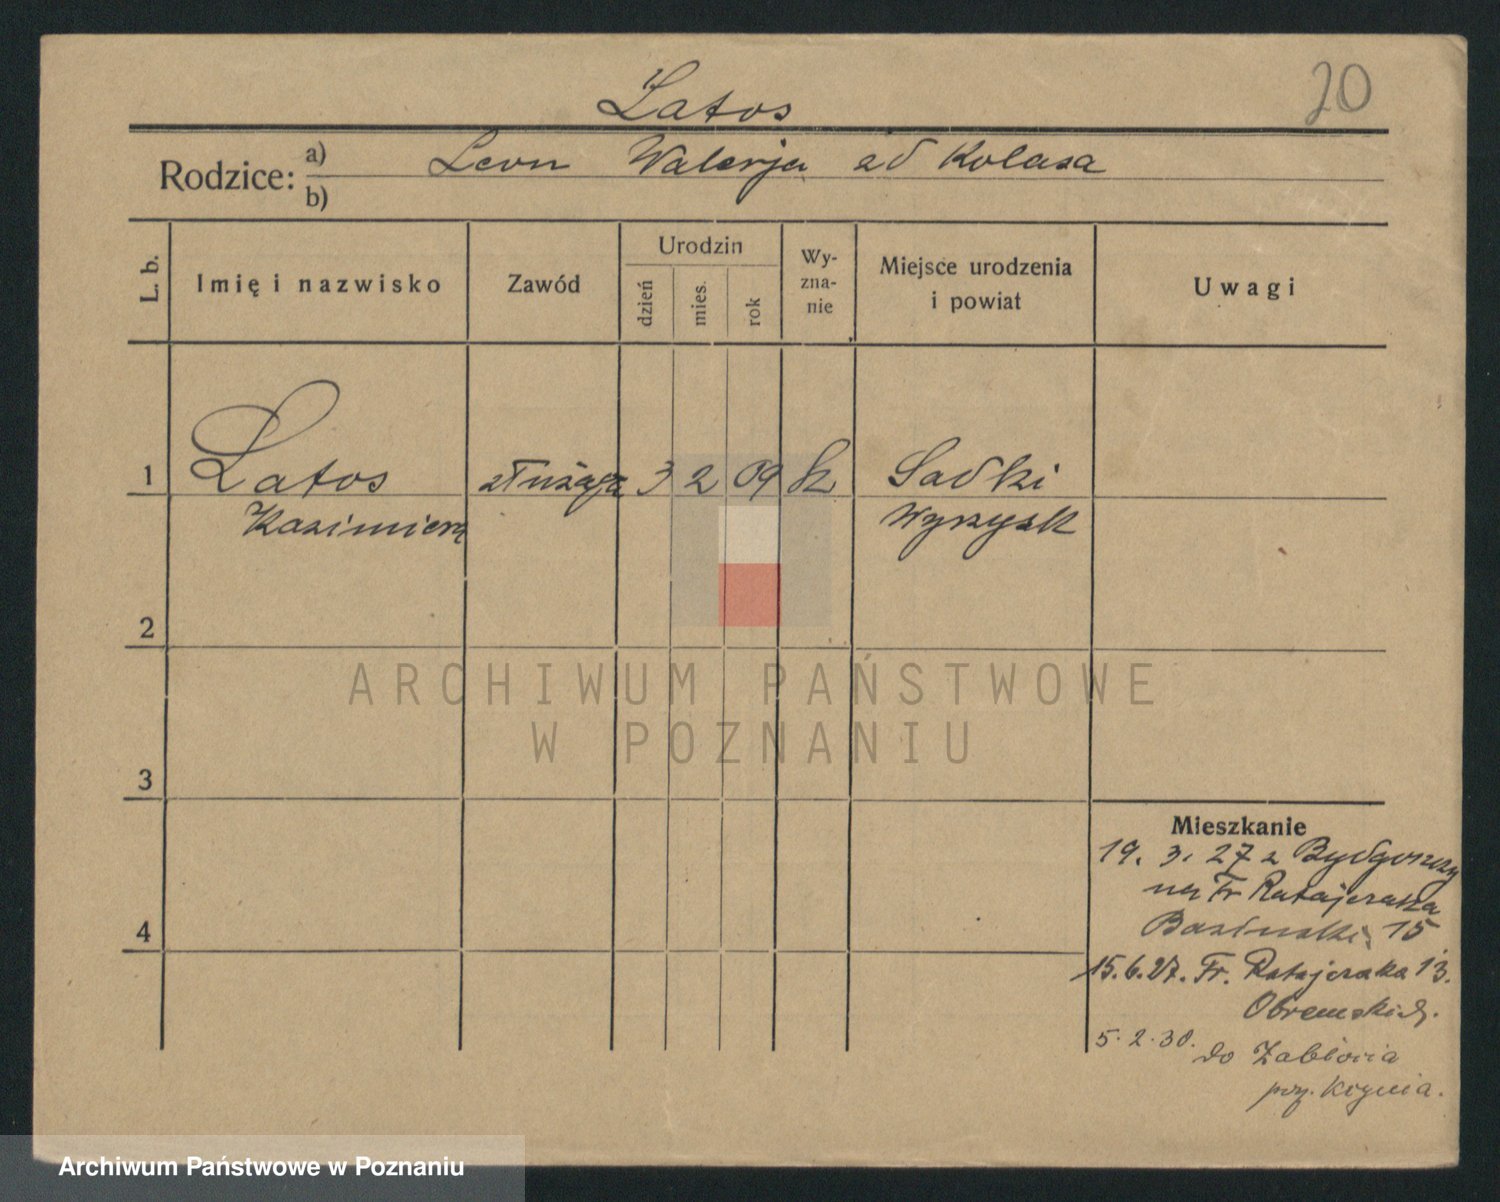 20
Latos
Rodzice: a) Leon Walerja zd Kolasa
b)
L. b.
Imię i nazwisko
Zawód
Urodzin
dzień
mies.
rok
Wy-
zna-
nie
Miejsce urodzenia
i powiat
Uwagi
1 Latos służąca 3 2 09 k Sadki
Kazimiera Wyrzysk
2
3
4
ARCHIWUM PAŃSTWOWE
W POZNANIU
Mieszkanie
19. 3. 27 z Bydgoszczy
na Fr Ratajczaka
15
15.6.27. Fr. Ratajczaka 13.
5.2.30.
do
Archiwum Państwowe w Poznaniu